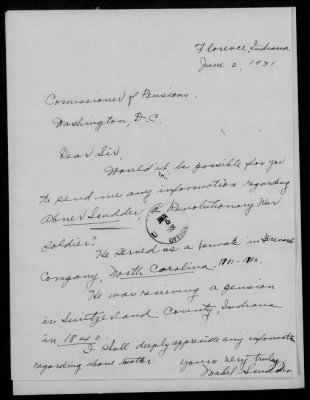 Florence, Indiana
June 2, 1931
Comissioner of Pensions.
Washington, D.C.
Dear Sir,
Would it be possible for you
to send me any information regarding
Abner Scudder, a Revolutionary War
soldier?
He served as a private in
Company, North Carolina,
He was reciving a pension
in Switzerland County, Indiana
in 1840
I shall deeply appreciate any information
regarding above matter
Yours very truly,
Mabel Scudder
OFFICE